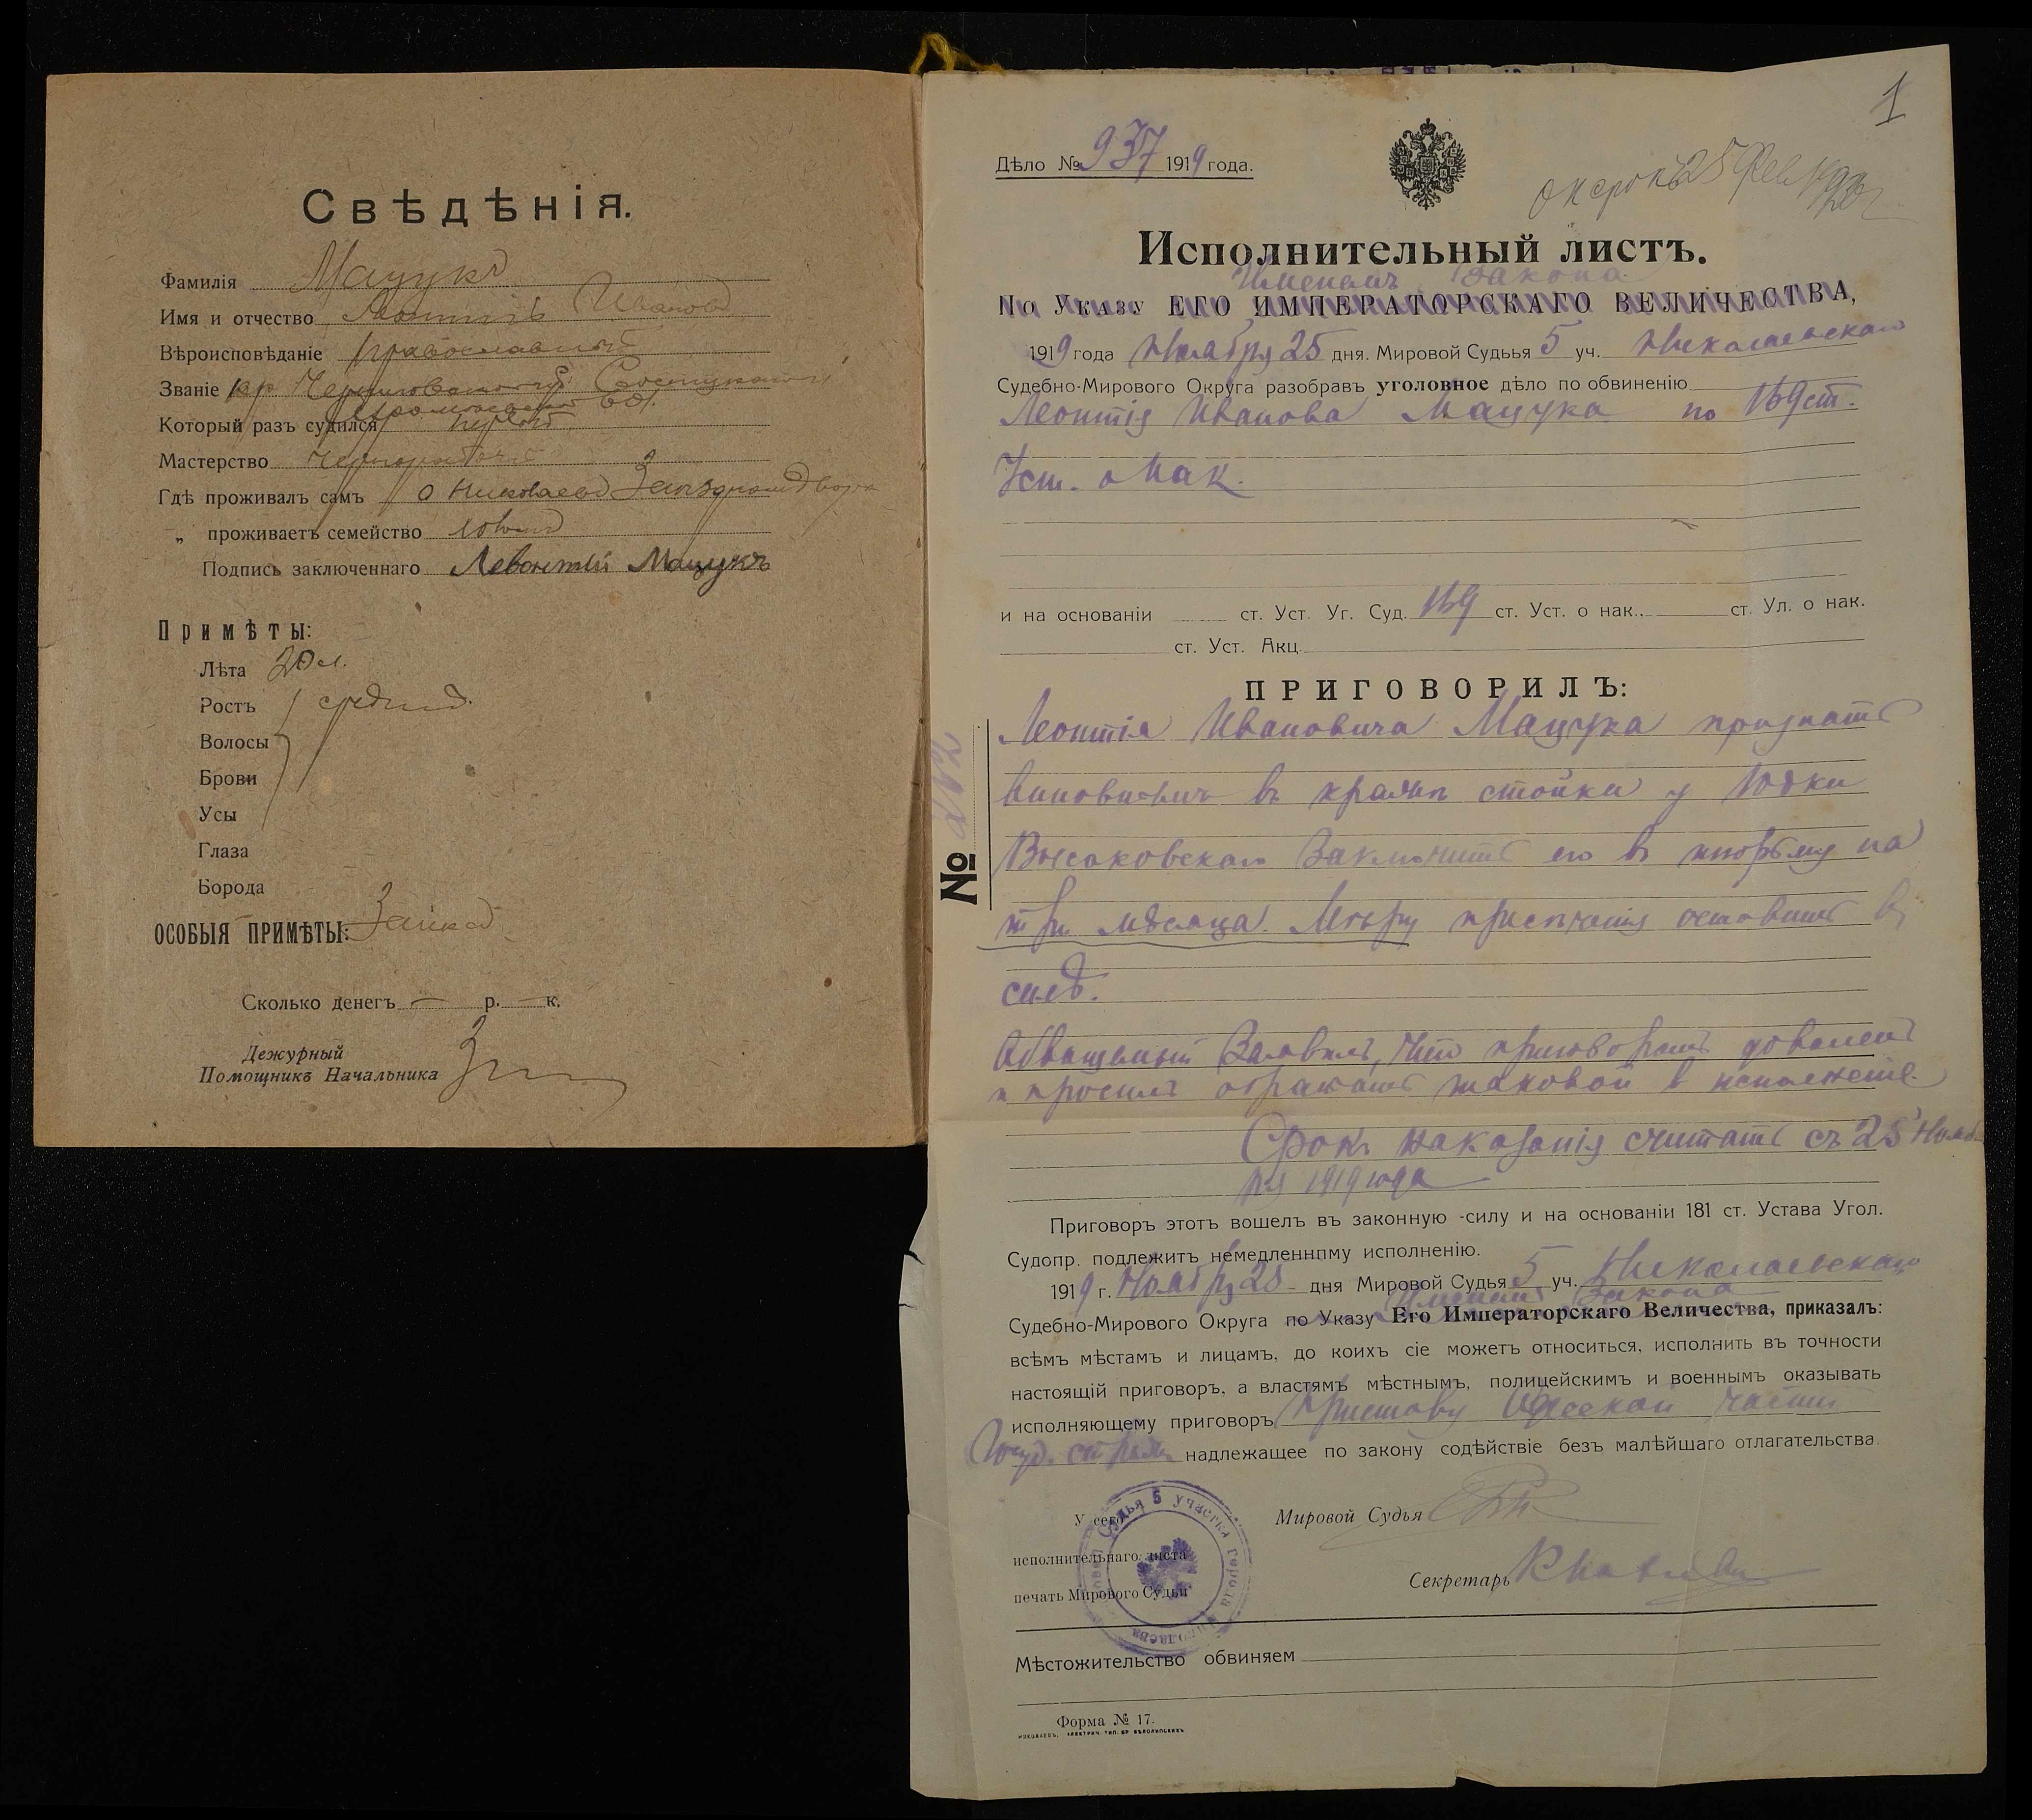 Свѣдѣнія.
Фамилія Мацукъ
Имя и отчество Леонтій Ивановъ
Вѣроисповѣданіе православный
Званіе кр. Черниговской г. Сосницкаго у
вол.
Который разъ судился первый
Мастерство Чернорабочій
Гдѣ проживалъ самъ Николаевъ
„ проживаетъ семейство
Подпись заключеннаго Левонтий Мацукъ
Примѣты:
Лѣта 20 л.
Ростъ средній
Волосы
Брови
Усы
Глаза
Борода
ОСОБЫЯ ПРИМѢТЫ: Заика
Сколько денегъ — р. — к.
Дежурный
Помощникъ Начальника
1
Дѣло № 937 1919 года.
Окср 25 Фев 1920 г
Исполнительный листъ.
Именемъ Закона
По Указу ЕГО ИМПЕРАТОРСКАГО ВЕЛИЧЕСТВА,
1919 года Ноября 25 дня. Мировой Судьья 5 уч. Николаевскаго
Судебно-Мирового Округа разобравъ уголовное дѣло по обвиненію
Леонтія Иванова Мацука по 169 ст.
Уст. о Нак.
и на основаніи ст. Уст. Уг. Суд. 169 ст. Уст. о нак., ст. Ул. о нак.
ст. Уст. Акц.
ПРИГОВОРИЛЪ:
Леонтія Ивановича Мацука признать
виновнымъ въ кражѣ стойки у Юдки
Высоковскаго Заключить его въ тюрьму на
три мѣсяца. Мѣру пресѣченія оставить въ
силѣ.
Обвиняемый Заявилъ, что приговоромъ доволенъ
и проситъ обратить таковой въ исполненіе.
Срокъ наказанія считать съ 25 Нояб
ря 1919 года
№
Приговоръ этотъ вошелъ въ законную -силу и на основаніи 181 ст. Устава Угол.
Судопр. подлежитъ немедленнпму исполненію.
1919 г. Ноября 25 дня Мировой Судья 5 уч. Николаевскаго
Именемъ Закона
Судебно-Мирового Округа по Указу Его Императорскаго Величества, приказалъ:
всѣмъ мѣстамъ и лицамъ, до коихъ сіе можетъ относиться, исполнить въ точности
настоящій приговоръ, а властямъ мѣстнымъ, полицейскимъ и военнымъ оказывать
исполняющему приговоръ Приставу Одесской части
Госуд. стражи надлежащее по закону содѣйствіе безъ малѣйшаго отлагательства.
У сего
исполнительнаго листа
печать Мирового Судьи
Мировой Судья 5 участка города Николаева
Мировой Судья
Секретарь
Мѣстожительство обвиняем
Форма № 17.
НИКОЛАЕВЪ, ЭЛЕКТРИЧ. ТИП. БР БѢЛОЛИПСКИХЪ